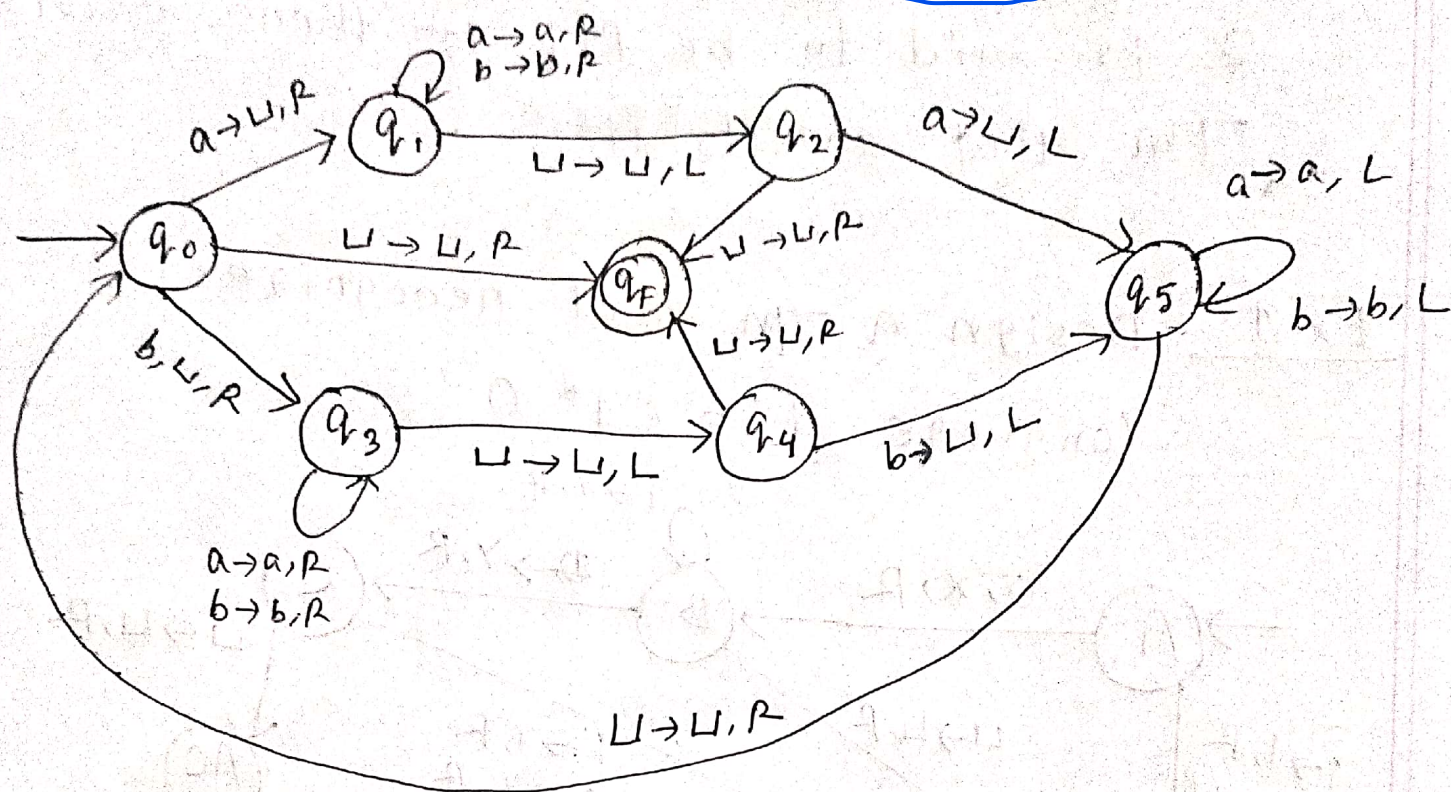 a→a,R
b→b,R
a→⊔,R
q1
⊔→⊔,L
q2
a→⊔,L
a→a,L
b→b,L
q0
⊔→⊔,R
qF
⊔→⊔,R
q5
b,⊔,R
⊔→⊔,R
q3
⊔→⊔,L
q4
b→⊔,L
a→a,R
b→b,R
⊔→⊔,R